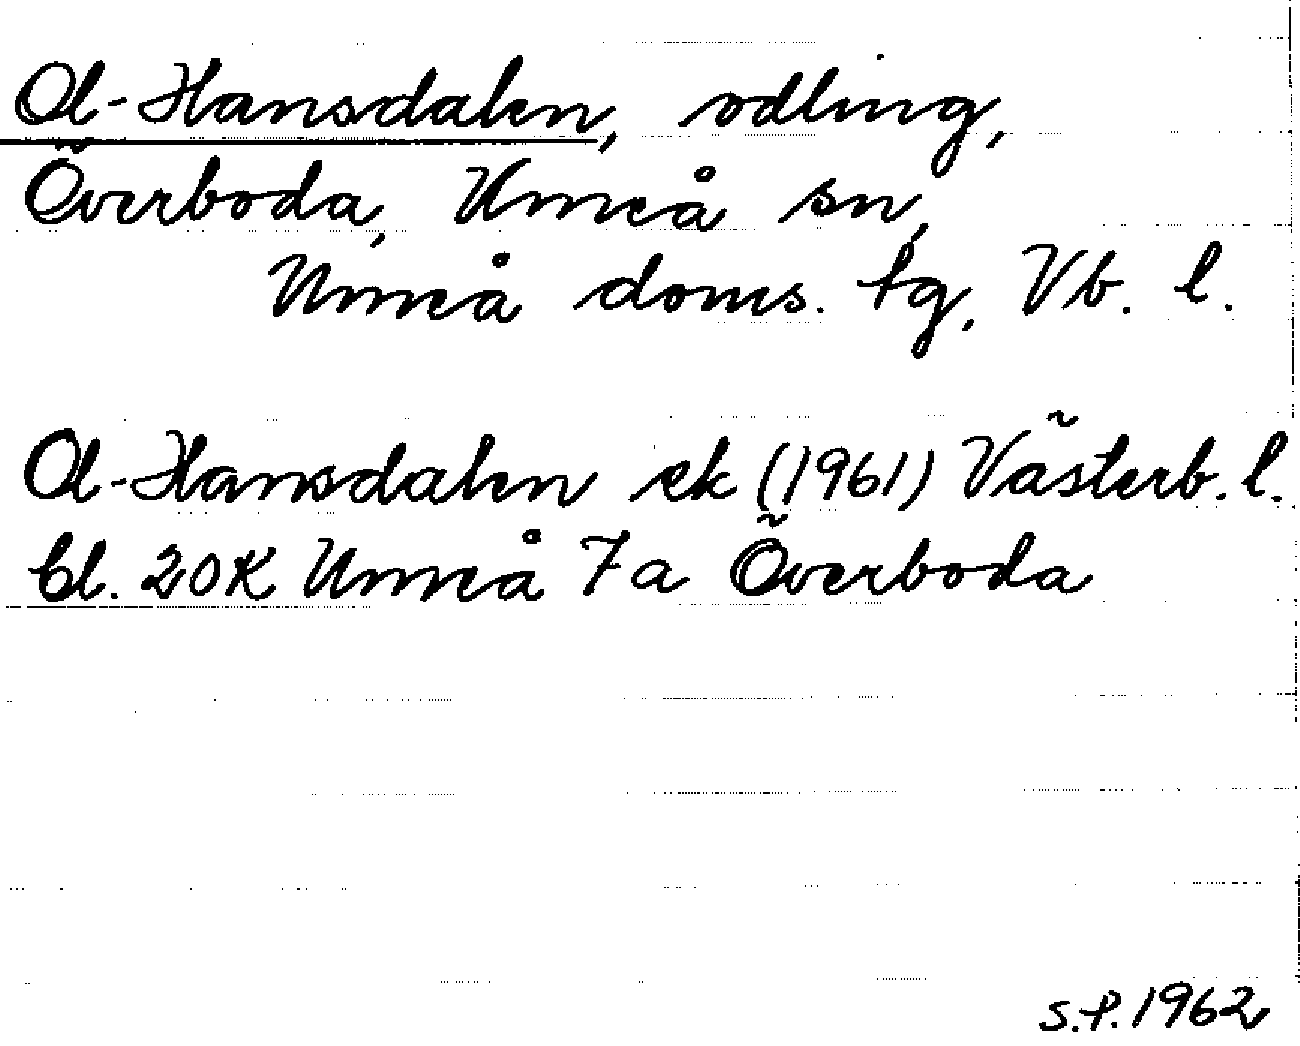 Ol-Hansdalen, odling,
Överboda, Umeå sn,
Umeå doms. tg, Vb. l.
Ol-Hansdalen ek (1961) Västerb. l.
bl. 20K Umeå 7a Överboda
S.P. 1962